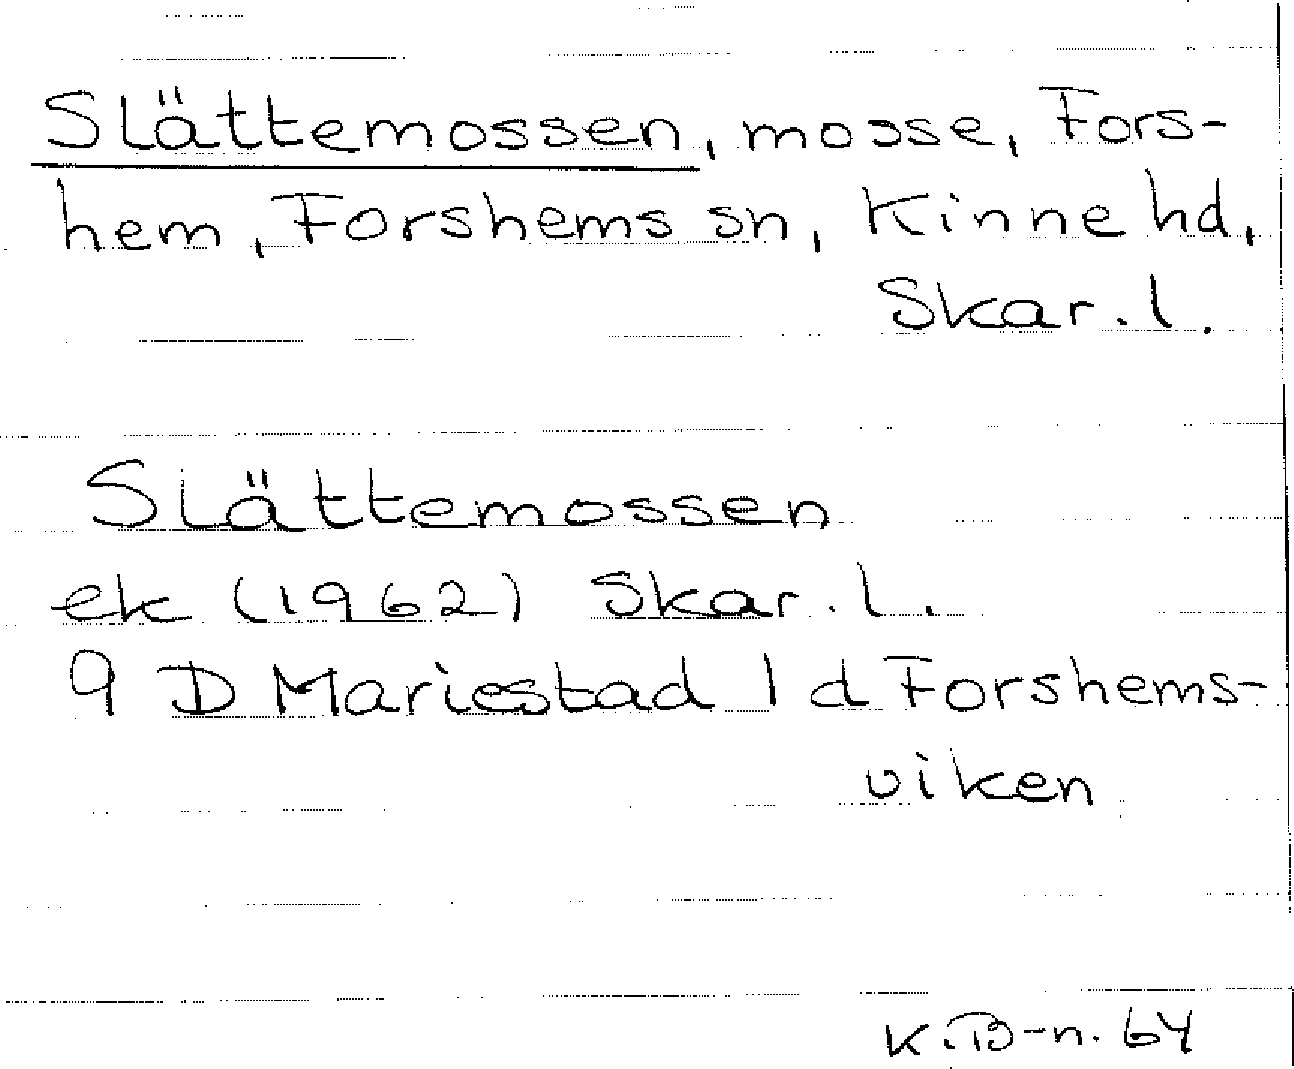 Slättemossen, mosse, Fors-
hem, Forshems sn, Kinne hd,
Skar. l.
Slättemossen
ek (1962) Skar. l.
9 D Mariestad 1 d Forshems-
viken
K.B-n. 64